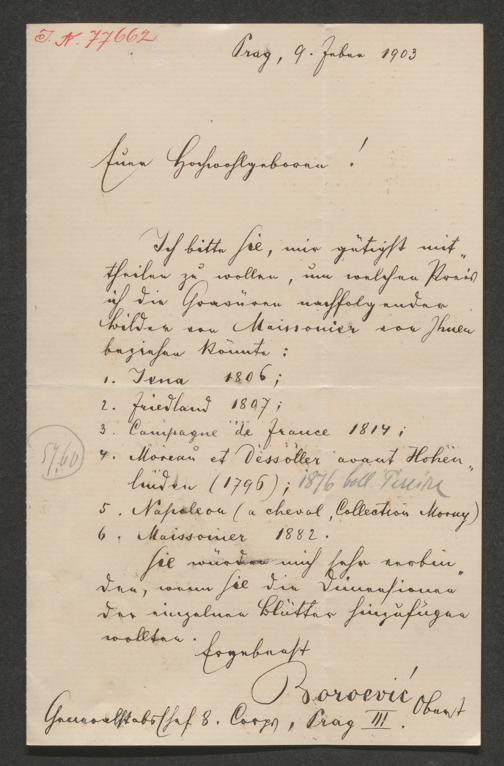 I. N. 77662
Prag, 9. Feber 1903
Euer Hochwohlgeboren!
Ich bitte Sie, mir gütigst mit„
theilen zu wollen, um welchen Preis
ich die Gravüren nachfolgender
Bilder von Maissonier von Ihnen
beziehen könnte:
1. Jena 1806;
2. Friedland 1807;
3. Campagne de France 1814;
4. Moreau et Dessoller avant Hohen„
linden (1796); 1876 Coll.
57,60
5. Napoleon (a cheval, Collection Morny)
6. Maissonier 1882.
Sie würden mich sehr verbin„
den, wenn Sie die Dimensionen
der einzelnen Blätter hinzufügen
wollten.
Ergebenst
Boroević
Oberst
Generalstabschef 8. Corps, Prag III.